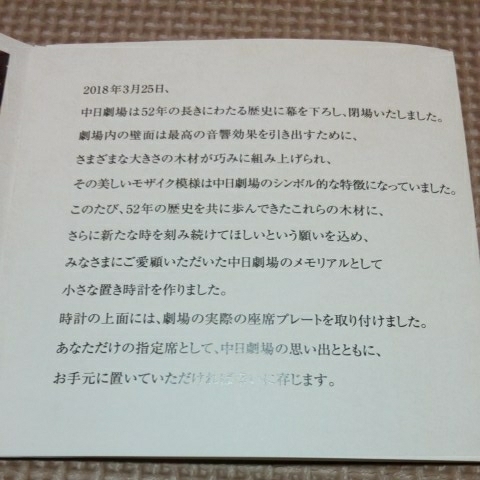 2018年3月25日、
中日劇場は52年の長きにわたる歴史に幕を下ろし、閉場いたしました。
劇場内の壁面は最高の音響効果を引き出すために、
さまざまな大きさの木材が巧みに組み上げられ、
その美しいモザイク模様は中日劇場のシンボル的な特徴になっていました。
このたび、52年の歴史を共に歩んできたこれらの木材に、
さらに新たな時を刻み続けてほしいという願いを込め、
みなさまにご愛顧いただいた中日劇場のメモリアルとして
小さな置き時計を作りました。
時計の上面には、劇場の実際の座席プレートを取り付けました。
あなただけの指定席として、中日劇場の思い出とともに、
お手元に置いていただければ に存じます。